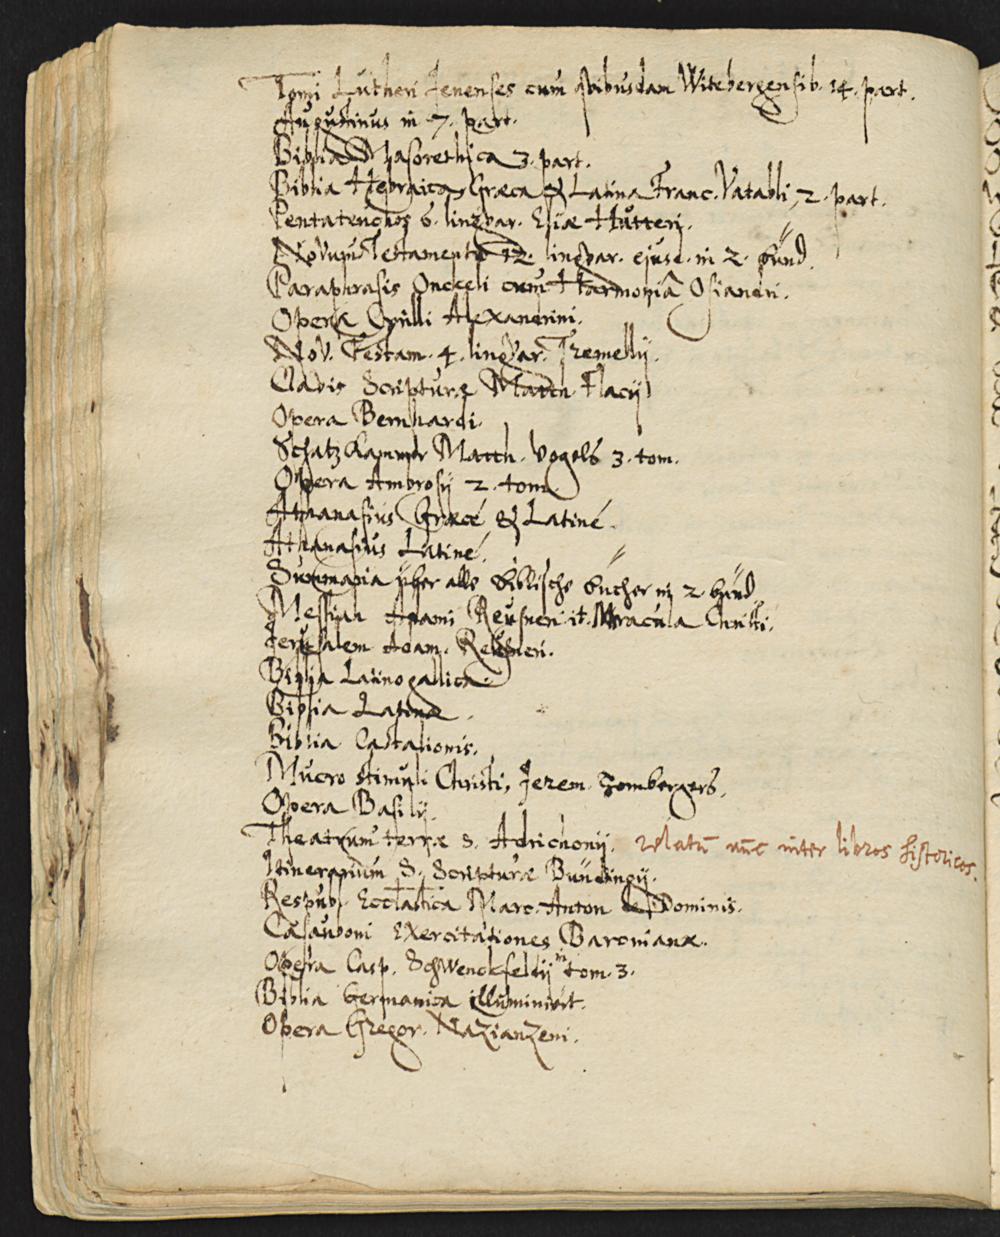 Tomi Lutheri Jenenses cum quibusdam Witebergensib. 14. part.
Augustinus in 7. part.
Biblia Masorethica 3. part.
Biblia Hebraica, Græca & Latina Franc. Vatabli, 2. part.
Pentateuchus 6. lingvar. Eliæ Hutteri.
Novum Testamentum 12. lingvar. ejusd. in 2. bünd.
Paraphrasis Onckeli cum Harmoniâ Osiandri.
Opera Cyrilli Alexandrini.
Nov. Testam. 4. lingvar. Tremellij.
Clavis Scripturæ Matth. Flacij
Opera Bernhardi.
Schatzkammer Matth. Vogels 3. tom.
Opera Ambrosij 2. tom.
Athanasius Græcé & Latiné.
Athanasius Latiné.
Summaria über alle biblische bücher in 2. bünd.
Messias Adami Reusneri it. Miracula Christi.
Jerusalem Adam. Reusneri.
Biblia Latinogallica.
Biblia Latina.
Biblia Castalionis.
Mucro stimuli Christi, Jerem. Hombergers.
Opera Basilij.
Theatrum terræ S. Adrichomij. relatũ nũc inter libros historicos.
Itinerarium S. Scripturæ Büntingij.
Respub. Ecclastica Marc. Anton de Dominis.
Casauboni Exercitationes Baronianæ.
Opera Casp. Schwenckfeldij in tom. 3.
Biblia Germanica illuminirt.
Opera Gregor. Nazianzeni.